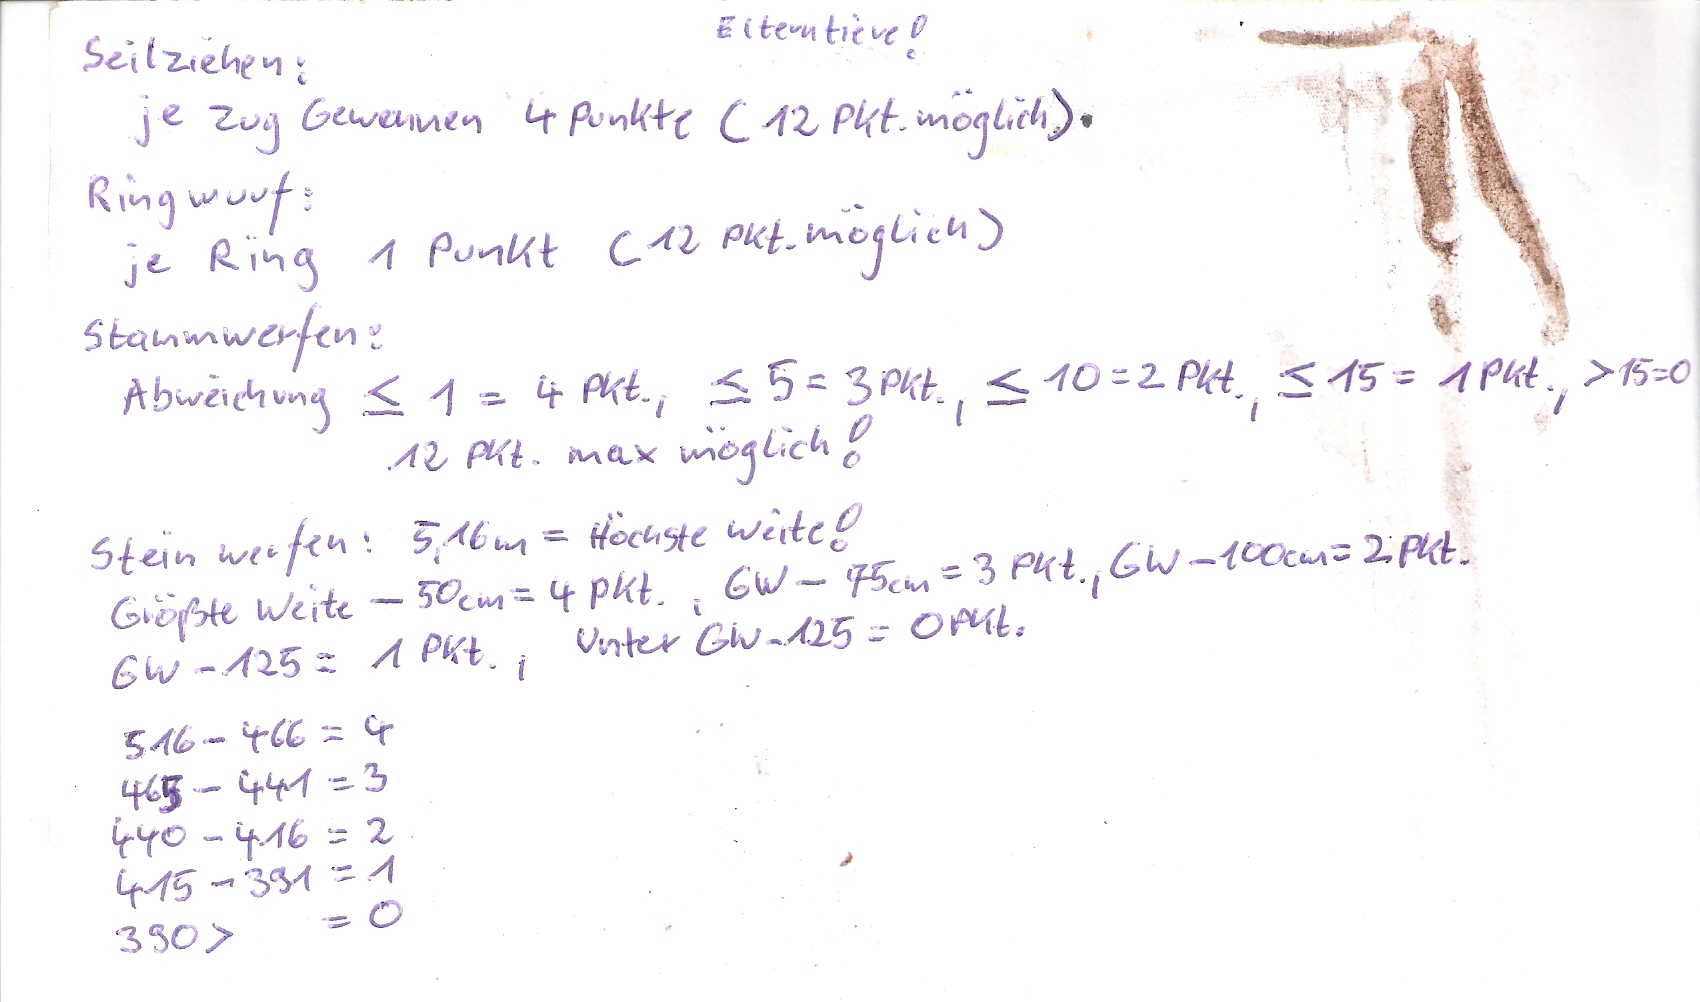 Elterntiere!
Seilziehen:
je Zug Gewonnen 4 Punkte (12 Pkt. möglich).
Ringwurf:
je Ring 1 Punkt (12 Pkt. möglich)
Stammwerfen:
Abweichung ≤ 1 = 4 Pkt., ≤ 5 = 3 Pkt., ≤ 10 = 2 Pkt., ≤ 15 = 1 Pkt., >15=0
12 Pkt. max möglich!
Stein werfen: 5,16m = Höchste Weite!
Größte Weite - 50cm = 4 Pkt., GW - 75cm = 3 Pkt., GW - 100cm = 2 Pkt.
GW - 125 = 1 Pkt., Unter GW - 125 = 0 Pkt.
516 - 466 = 4
465 - 441 = 3
440 - 416 = 2
415 - 391 = 1
390 > = 0